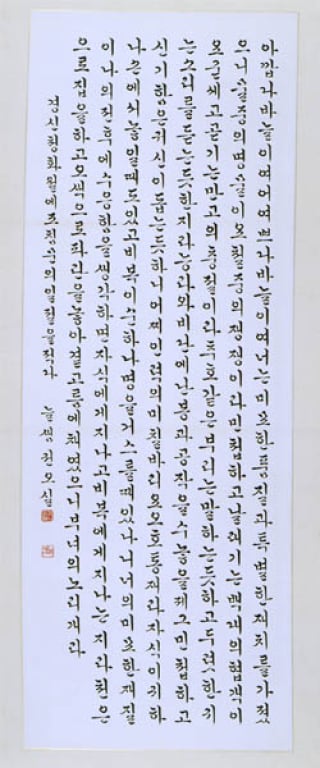 아깝다바늘이여어여쁘다바늘이여너는미묘한품질과특별한재치를가졌
으니물중의명물이오철중의쟁쟁이라민첩하고날래기는백대의협객이
오굳세고곧기는만고의충절이라추호같은부리는말하는듯하고두렷한귀
는소리를듣는듯한지라능라와비단에난봉과공작을수놓을제그민첩하고
신기함은귀신이돕는듯하니어찌인력의미칠바리오오호통재라자식이귀하
나손에서놓일때도있고비복이순하나명을거스를때있나니너의미묘한재질
이나의전후에수응함을생각하면자식에게지나고비복에게지나는지라천은
으로집을하고오색으로파란을놓아곁고름에채였으니부녀의노리개라
경신청화월에조침문의일절을적다 늘샘권오실